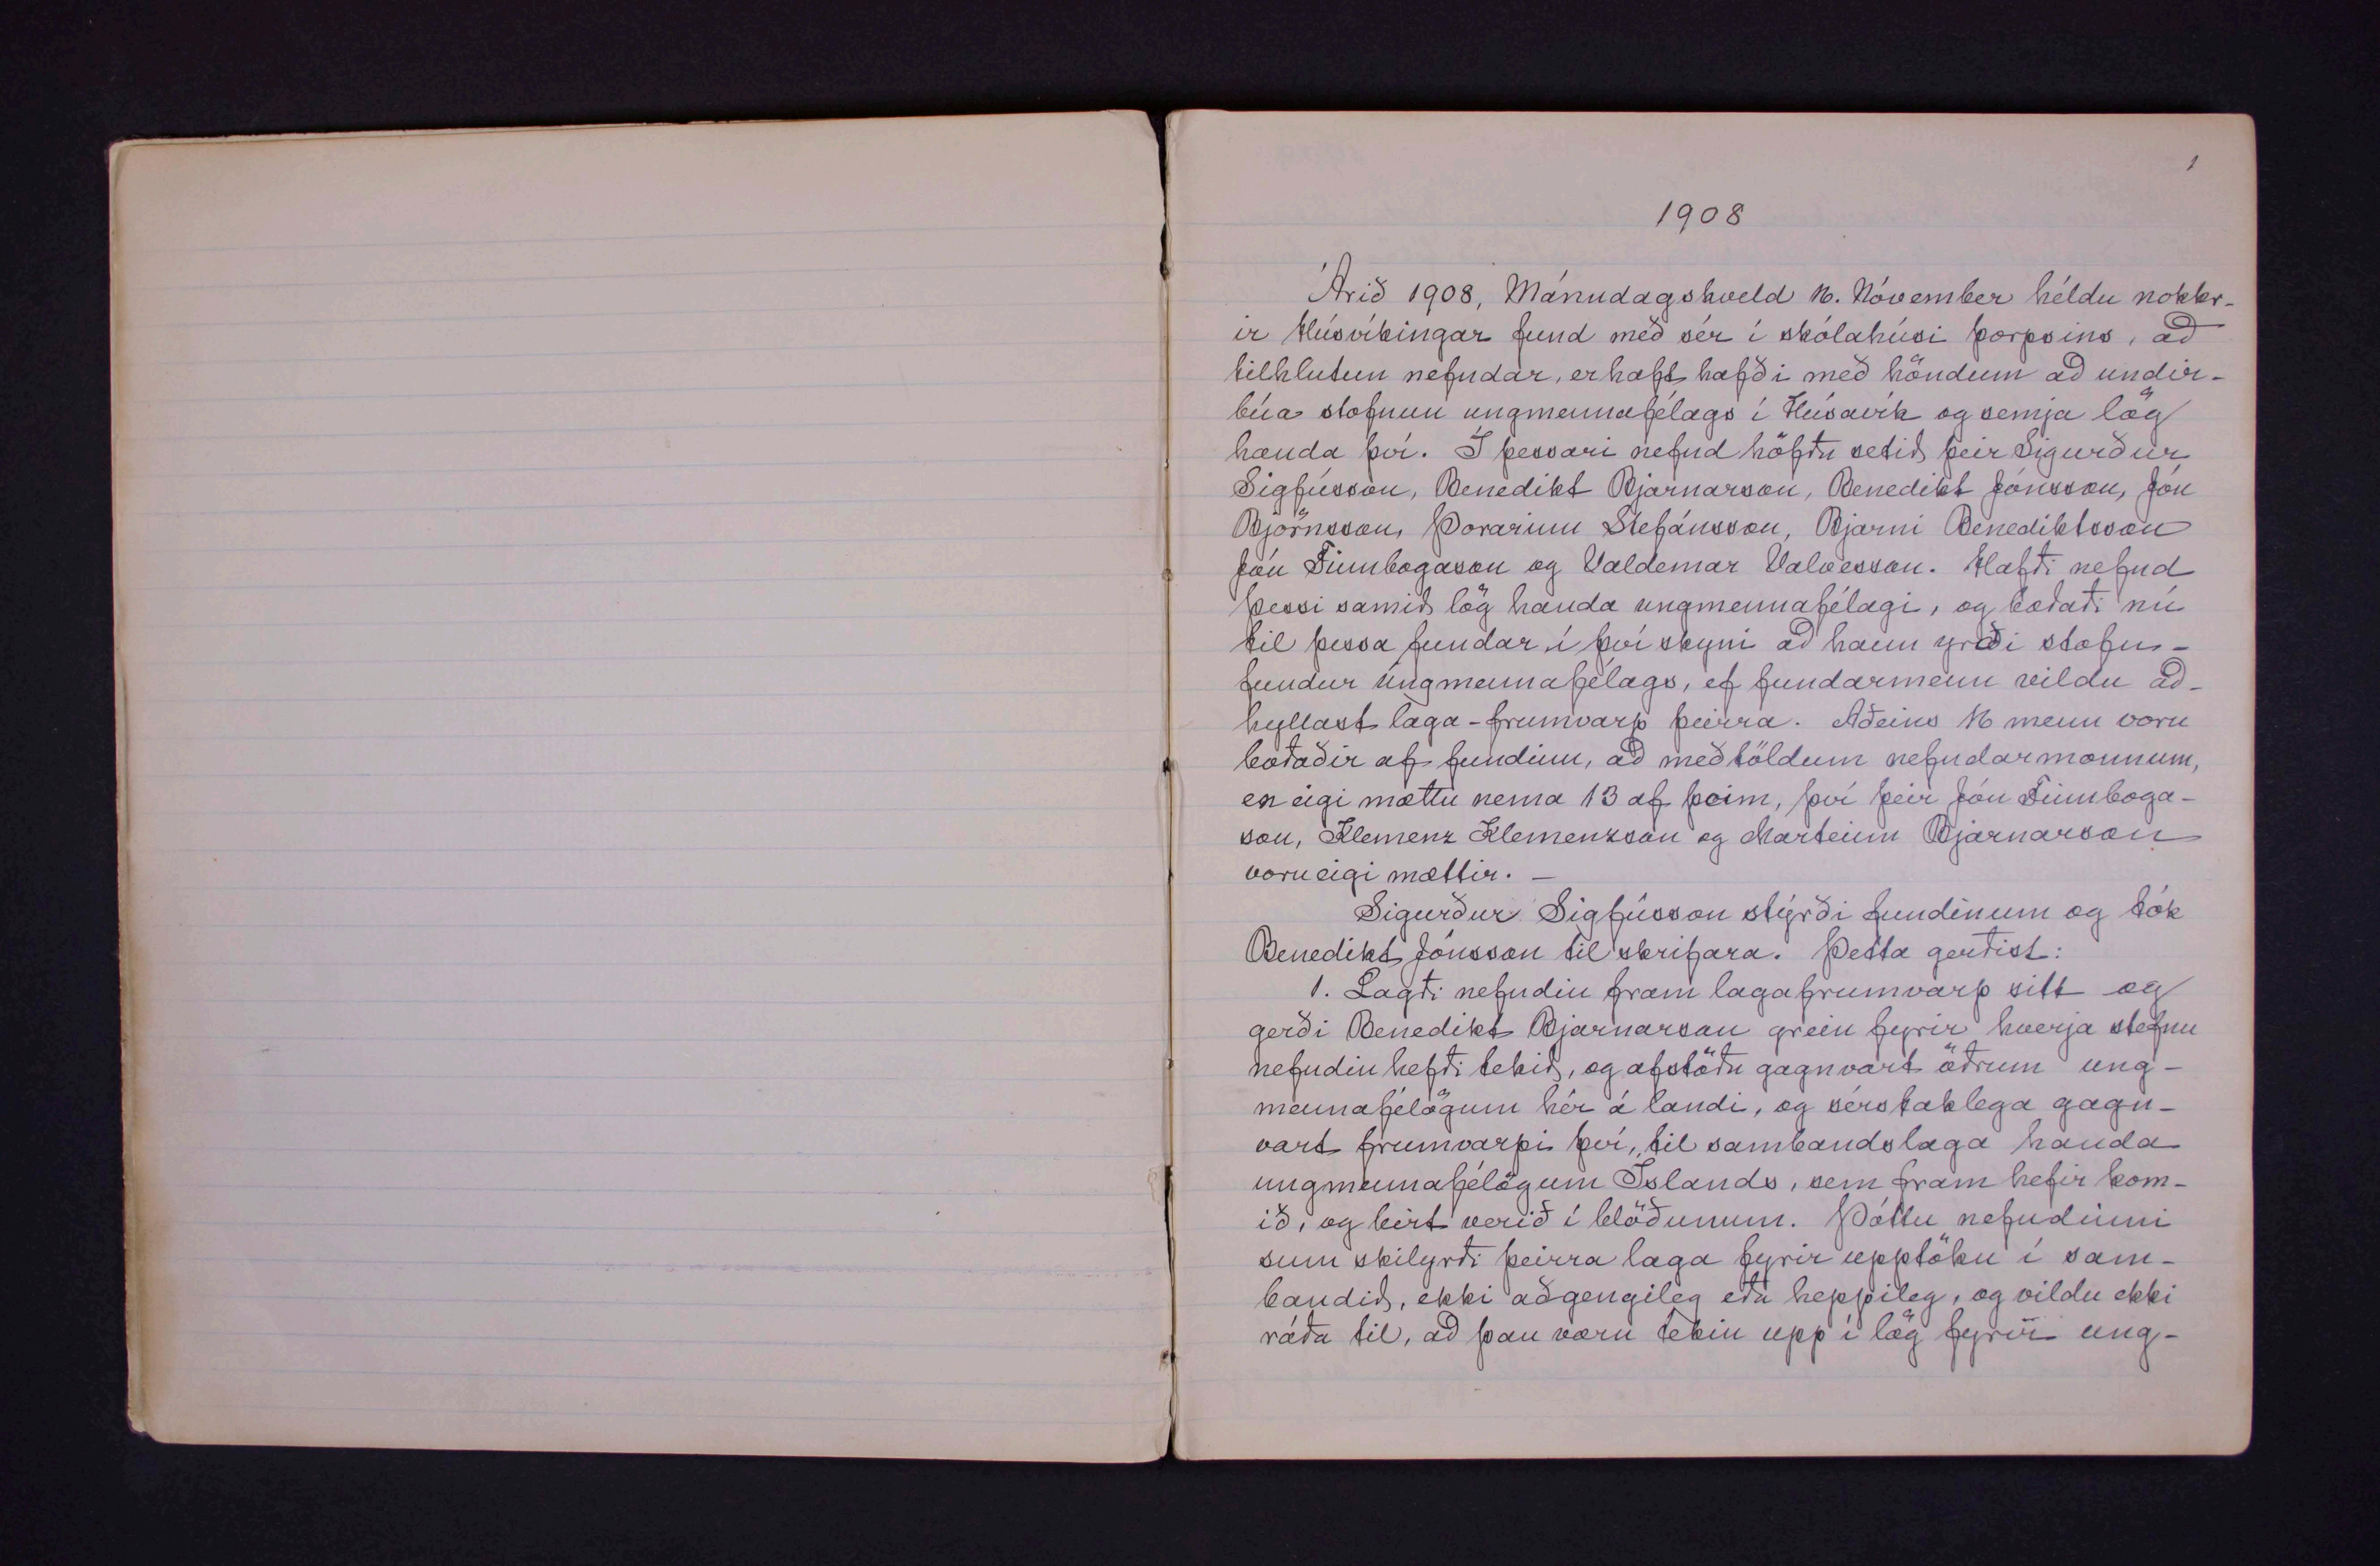 1
1908
Árið 1908, Mánudagskveld 16. Nóvember héldu nokkr-
ir Húsvíkingar fund með sér í skólahúsi þorpsins, að
tilhlutun nefndar, er haft hafði með höndum að undir-
búa stofnun ungmennafélags í Húsavík og semja lög
handa því. Í þessari nefnd höfðu setið þeir Sigurður
Sigfússon, Benedikt Bjarnarson, Benedikt Jónsson, Jón
Björnsson, Þorarinn Stefánsson, Bjarni Benediktsson
Jón Finnbogason og Valdemar Valvesson. Hafði nefnd
þessi samið lög handa ungmennafélagi, og boðaði nú
til þessa fundar í því skyni að hann yrði stofn-
fundur ungmennafélags, ef fundarmenn vildu að-
hyllast laga-frumvarp þeirra. Aðeins 16 menn voru
boðaðir af fundinn, að meðtöldum nefndarmonnum,
en eigi mættu nema 13 af þeim, því þeir Jón Finnboga-
son, Klemenz Klemenzson og Marteinn Bjarnarson
voru eigi mættir. –
Sigurður Sigfússon stýrði fundinum og tók
Benedikt Jónsson til skrifara. Þetta gerðist:
1. Lagði nefndin fram lagafrumvarp sitt og
gerði Benedikt Bjarnarson grein fyrir hverja stefnu
nefndin hefði tekið, og afstöðu gagnvart öðrum ung-
mennafélögum hér á landi, og sérstaklega gagn-
vart frumvarpi því, til sambandslaga handa
ungmennafélögum Íslands, sem fram hefir kom-
ið, og birt verið í blöðunum. Þóttu nefndinni
sum skilyrði þeirra laga fyrir upptöku í sam-
bandið, ekki aðgengileg eða heppileg, og vildu ekki
ráða til, að þau væru tekin upp í lög fyrir ung-